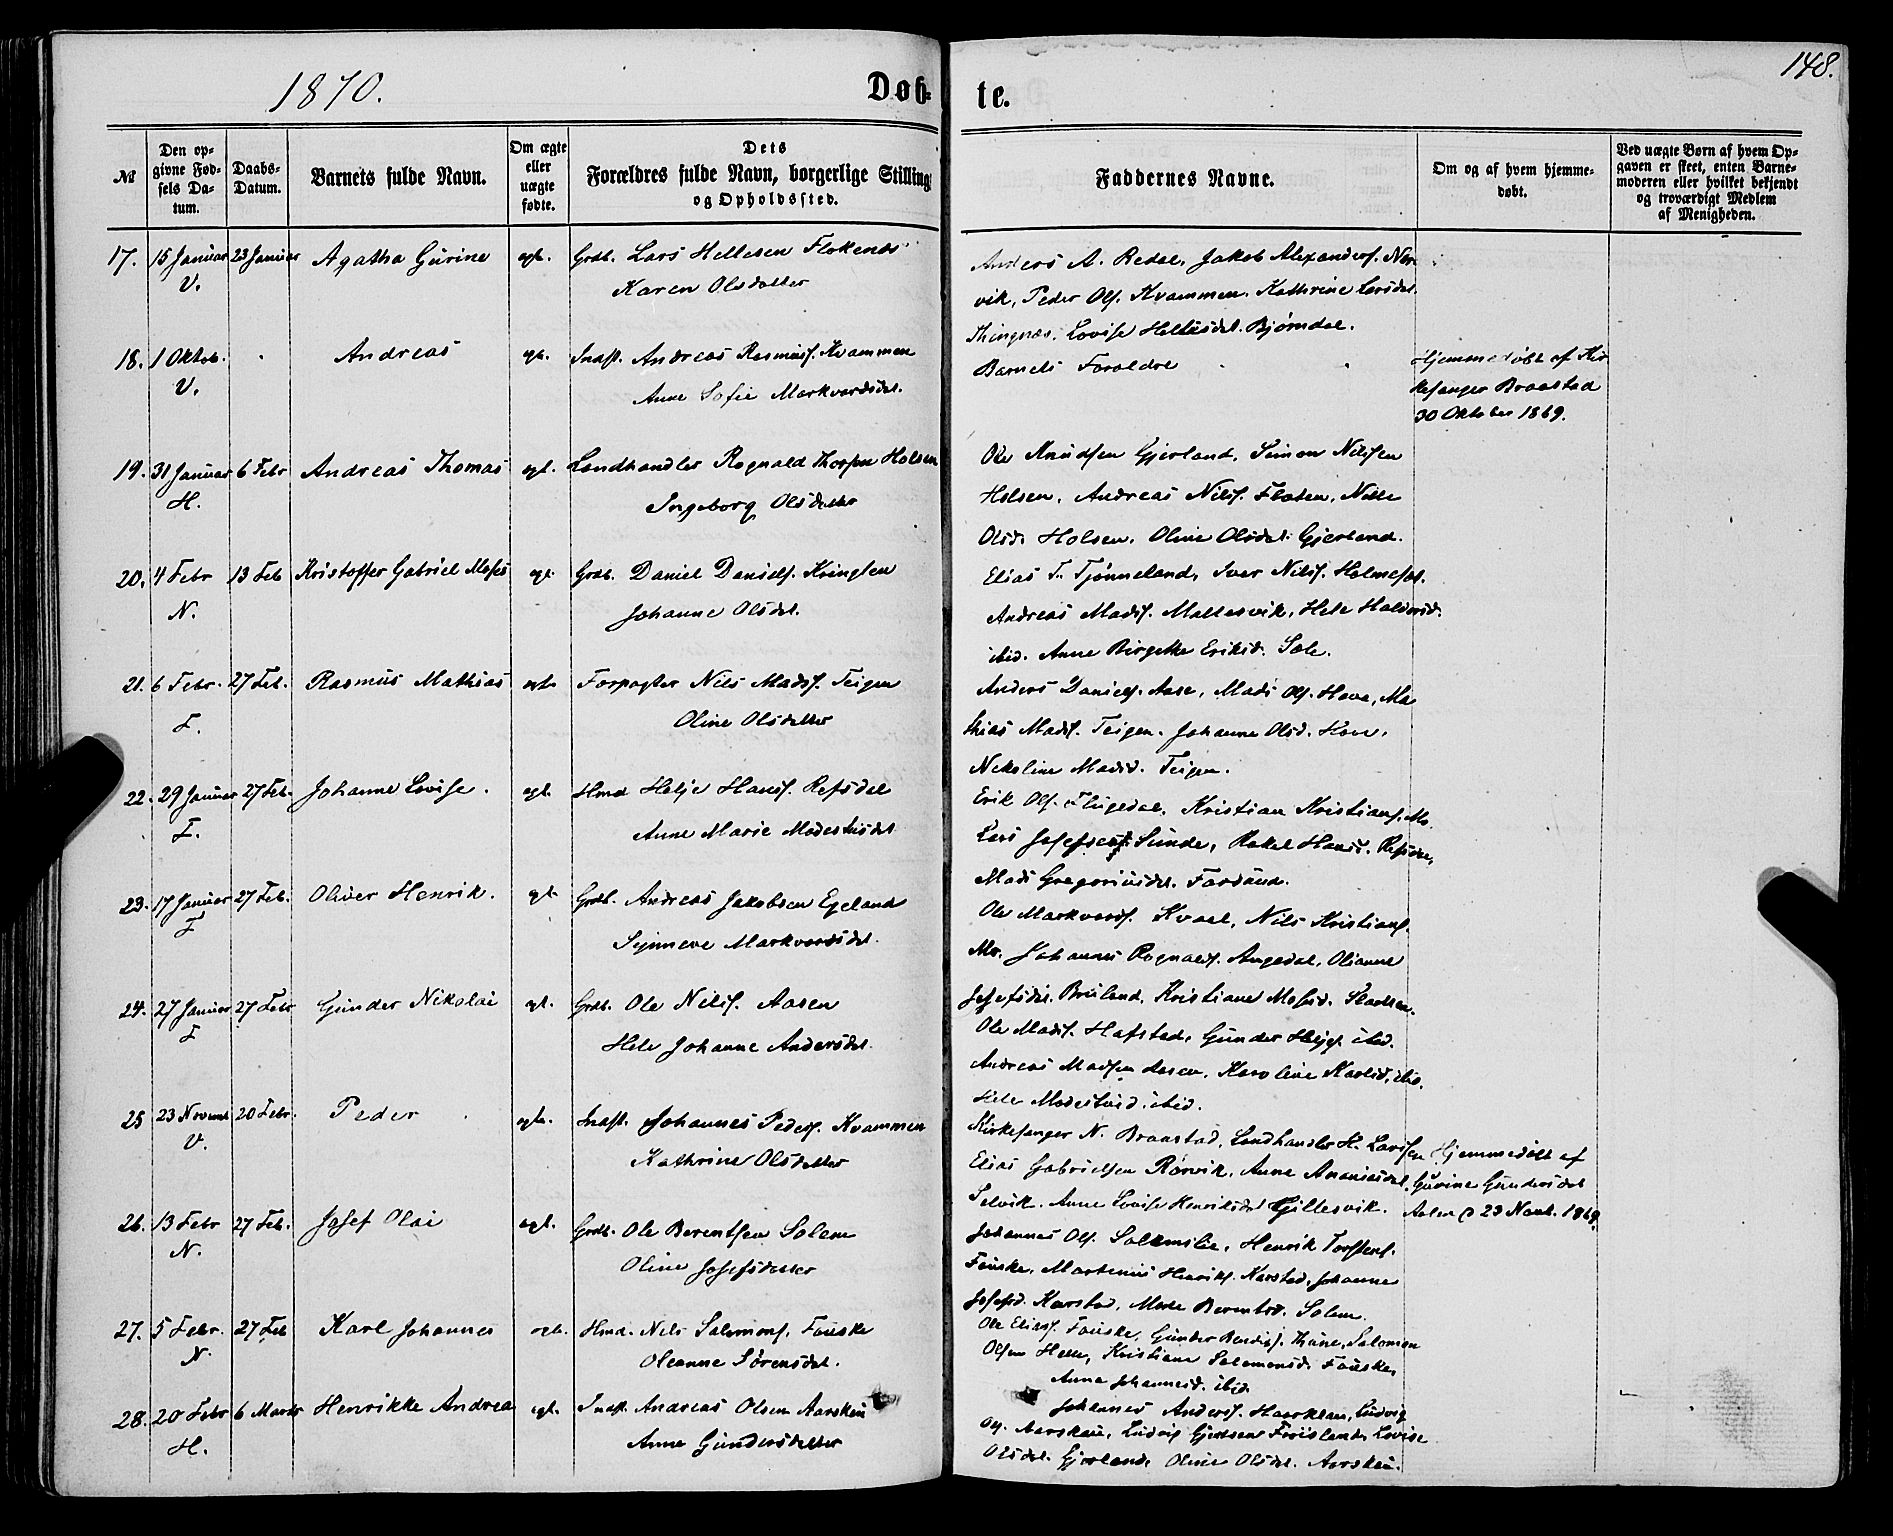 1870.
Døb-
te.
148.
№
Den op-
givne Fød-
sels Da-
tum.
Daabs-
Datum.
Barnets fulde Navn.
Om ægte
eller
uægte
fødte.
Dets
Forældres fulde Navn, borgerlige Stilling
og Opholdssted.
Faddernes Navne.
Om og af hvem hjemme-
døbt.
Ved uægte Børn af hvem Op-
gaven er skeet, enten Barne-
moderen eller hvilket bekjendt
og troværdigt Medlem
af Menigheden.
17. 15 Januar 23 Januar Agatha Gurine egt. Grdb. Lars Hellesen Flokenes
V. Karen Olsdatter
Anders A. Redal, Jakob Alexanders. Nor
vik, Peder Ols. Kvammen, Kathrine Larsdat.
Thingnæs, Lovise Hellesdat. Bjørndal.
18. 1 Oktob. Andreas egt. Inast. Andreas Rasmuss. Kvammen
V. Anne Sofie Markvardsdat.
Barnets Foraldre
Hjemmedøbt af Kir
kesanger Braastad
30 Oktober 1869.
19. 31 Januar 6 Febr Andreas Thomas egt. Landhandler Rognald Thorsen Holsen
H. Ingeborg Olsdatter
Ole Knudsen Gjerland, Simon Nilssen
Holsen, Andreas Nilss. Flaten, Nille
Olsd. Holsen, Oline Olsdat. Gjerland.
20. 4 Febr 13 Feb Kristoffer Gabriel Moses egt. Grdb. Daniel Daniels. Kringlen
N. Johanne Olsdat.
Elias T. Tjønneland, Iver Nilss. Holmeset.
Andreas Madss. Mallesvik, Hele Haldorsd.
ibid. Anne Birgitte Eriksd. Sæle.
21. 6 Febr. 27 Feb. Rasmus Mathias egt. Forpagter Nils Madss. Teigen
F. Oline Olsdatter
Anders Daniels. Aase, Mads Ols. Hove, Ma
thias Madss. Teigen. Johanne Olsd.
Nikoline Madsd. Teigen.
22. 29 Januar 27 Feb. Johanne Lovise. egt. Hmd Helje Hanss. Refsdal
F. Anne Marie Modestusdat.
Erik Ols. Flugedal, Kristian Kristians. Mo.
Lars Josefsen Sunde, Rakel Hansd.
Gregoriusdat. Farsund.
23. 17 Januar 27 Feb. Oliver Henrik. egt. Grdb. Andreas Jakobsen Egeland
F Synneve Markvardsdat.
Ole Markvards. Kvaal, Nils Kristians.
Mo. Johannes Rognalds. Angedal, Olianne
Josefsdat. Bruland, Kristiane Mosesd.
24. 27 Januar 27 Febr Gunder Nikolai egt. Grdb. Ole Nilss. Aasen
F Hele Johanne Andersdat.
Ole Madss. Hafstad, Gunder Heljes. ibid.
Andreas Madsen Aasen, Karoline Karlsd. ibid.
Hele Modestusd. ibid.
25 23 Novemb 20 Febr. Peder egt. Inast. Johannes Peders. Kvammen
V. Kathrine Olsdatter
Kirkesanger N. Braastad, Landhandler H. Larssen
Elias Gabrielsen Rørvik, Anne Ananiasdat.
Selvik. Anne Lovise Henriksdat. Gillesvik.
Hjemmedøbt af
Gurine Gundersdat
23 Novb. 1869.
26. 13 Febr 27 Feb. Josef Olai egt. Grdb. Ole Berentsen Solem
N. Oline Josefsdatter
Johannes Ols. Solemslie, Henrik Torstens.
Fauske, Martinus Henriks. Karstad, Johanne
Josefsd. Karstad, Marte Berentsd. Solem.
27. 5 Febr. 27 Feb Karl Johannes egt. Hmd. Nils Salomons. Fauske
N. Oleanne Sørensdat.
Ole Eliass. Fauske, Gunder Bendiks. Thune, Salomon
Olsen Helle, Kristiane Salomonsd. Fauske,
Anna Johannesd. ibid.
28. 20 Febr 6 Marts Henrikke Andrea egt. Inast. Andreas Olsen Aarskau
H. Anne Gundersdatter
Johannes Anders. Haarklau, Ludvig
Ols. Aarskau, Ludvig Gjertsen Lovise
Olsdat. Gjerland, Oline Olsdat. Aarskau.